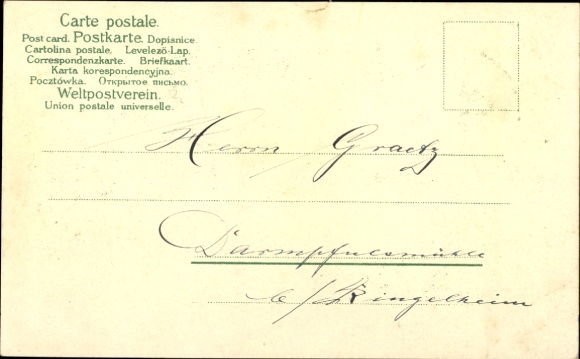 Carte postale.
Post card. Postkarte. Dopisnice.
Cartolina postale. Levelezö-Lap.
Correspondenzkarte. Briefkaart.
Karta korespondencyjna.
Pocztówka. Открытое письмо.
Weltpostverein.
Union postale universelle.
Herrn Graetz
Darmpfulsmühle
b/Ringelheim